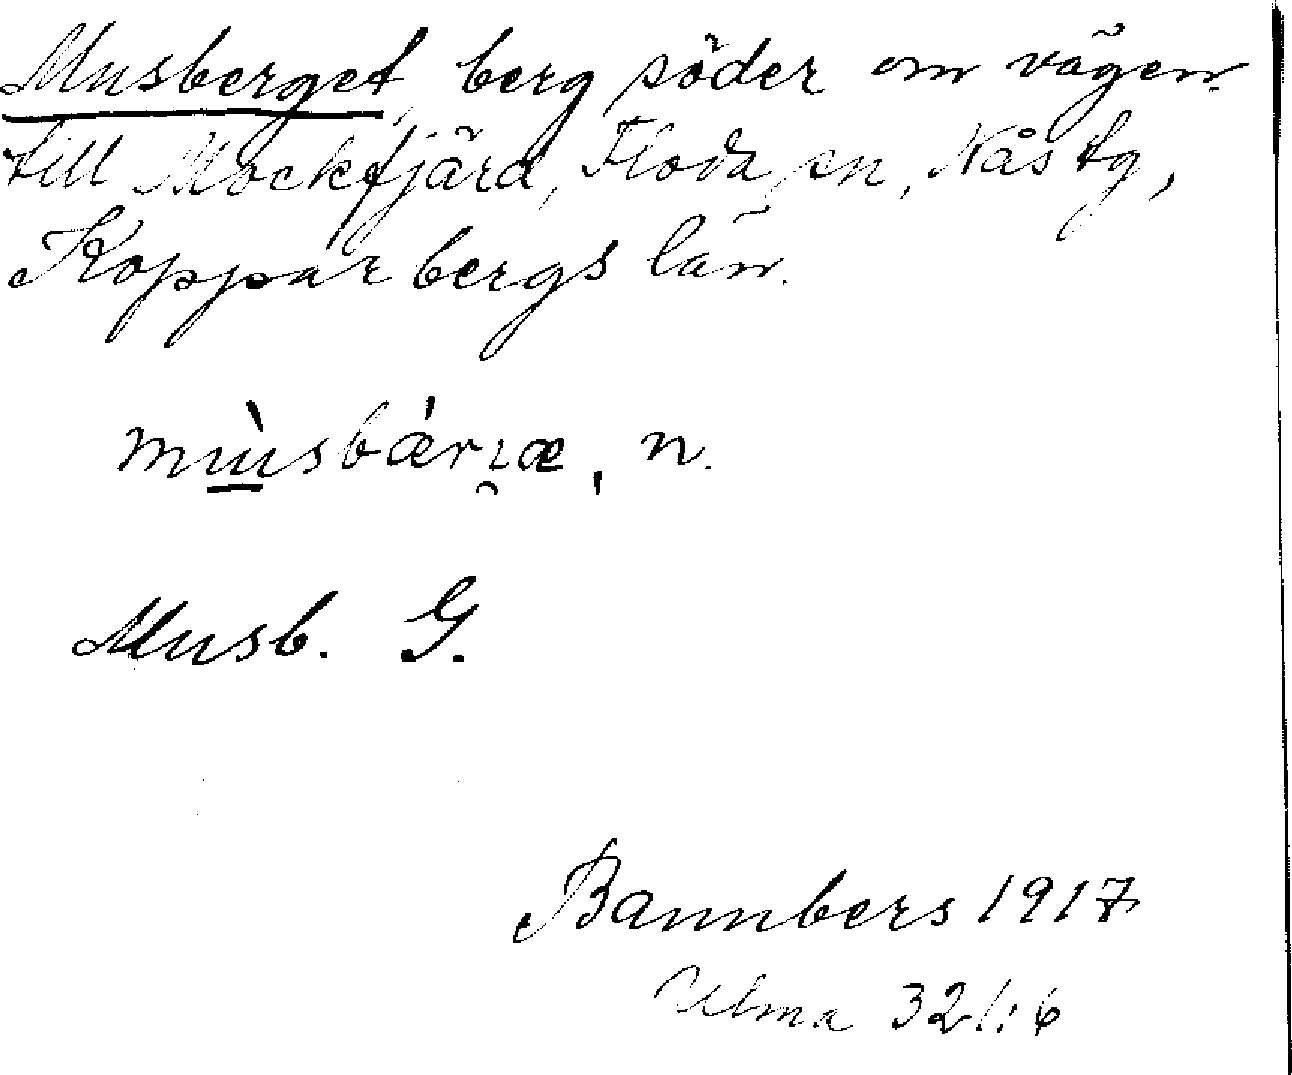 Musberget, berg söder om vägen
till Mockfjärd, Floda sn, Nås tg,
Kopparbergs län.
mùsbǽrɩæ, n.
Musb. G.
Bannbers 1917
Ulma 321:6